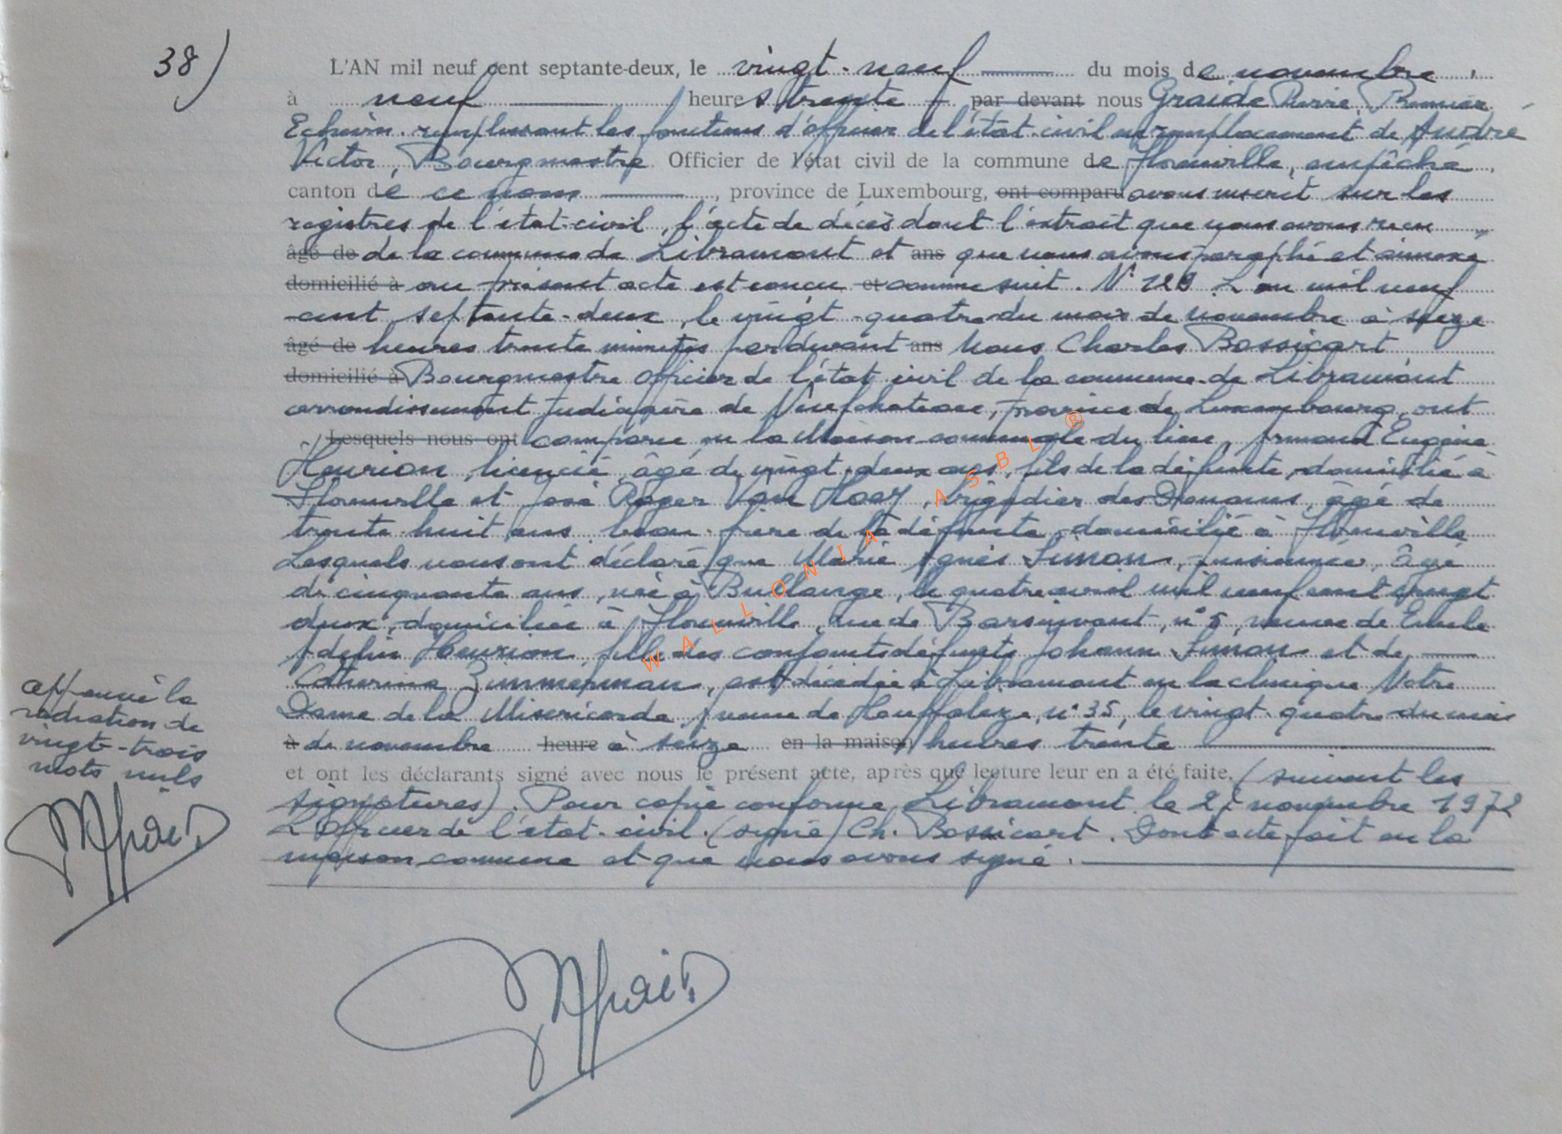 38)
L'AN mil neuf cent septante-deux, le vingt-neuf du mois de novembre,
à neuf heures trente par devant nous Graide Pierre Premier
Echevin remplissant les fonctions d'officier de l'état-civil en remplacement de André
Victor, Bourgmestre Officier de l'état civil de la commune de Florenville, empêché,
canton de ce nom, province de Luxembourg, ont comparu avons inscrit sur les
registres de l'état-civil, l'acte de décès dont l'extrait que nous avons reçu
âgé de de la commune de Libramont et ans que nous avons paraphé et annexé
domicilié à au présent acte est conçu et comme suit. N° 128 L'an mil neuf
cent septante-deux, le vingt-quatre du mois de novembre à seize
âgé de heures trente minutes par devant ans Nous Charles Bossicart,
domicilié à Bourgmestre officier de l'état civil de la commune de Libramont
arrondissement judiciaire de Neufchateau, province de Luxembourg, ont
Lesquels nous ont comparu en la Maison communale du lieu, Armand Eugène
Henrion, licencié, âgé de vingt-deux ans, fils de la défunte, domicilié à
Florenville et José Roger Van Hoey, brigadier des Douanes, âgé de
trente huit ans, beau-frère de la défunte, domicilié à Florenville
Lesquels nous ont déclaré que Marie Agnès Simon, pensionnée, âgé
de cinquante ans, née à Bullange, le quatre avril mil neuf cent vingt
deux, domiciliée à Florenville, rue de Barsinvant, n° 5, veuve de Emile
Adelin Henrion, fille des conjoints défunts Johann Simon et de
Catherina Zimmerman, est décédée à Libramont en la clinique Notre
Dame de la Miséricorde, avenue de Houffalize n° 35, le vingt-quatre du mois
à de novembre heure à seize en la maison heures trente
et ont les déclarants signé avec nous le présent acte, après que lecture leur en a été faite, (suivent les
signatures). Pour copie conforme, Libramont le novembre 1972
L'officier de l'état-civil (signé) Ch. Bossicart. Dont acte fait en la
maison commune et que nous avons signé.
approuvé la
radiation de
vingt-trois
mots nuls
WALLONIA ASBL ®